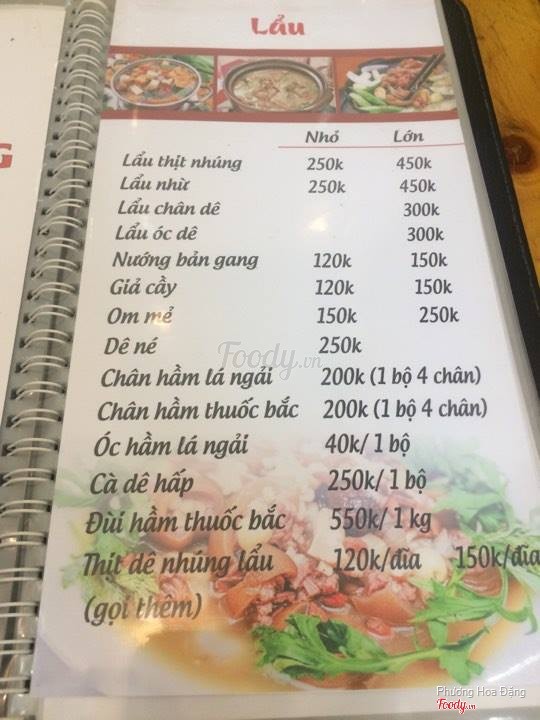 Lẩu
Nhỏ Lớn
Lẩu thịt nhúng 250k 450k
Lẩu nhừ 250k 450k
Lẩu chân dê 300k
Lẩu óc dê 300k
Nướng bản gang 120k 150k
Giả cầy 120k 150k
Om mẻ 150k 250k
Dê né 250k
Foody.vn
Chân hầm lá ngải 200k (1 bộ 4 chân)
Chân hầm thuốc bắc 200k (1 bộ 4 chân)
Óc hầm lá ngải 40k/ 1 bộ
Cà dê hấp 250k/ 1 bộ
Đùi hầm thuốc bắc 550k/ 1 kg
Thịt dê nhúng lẩu 120k/đĩa 150k/đĩa
(gọi thêm)
G
Phương Hoa Đặng
Foody.vn